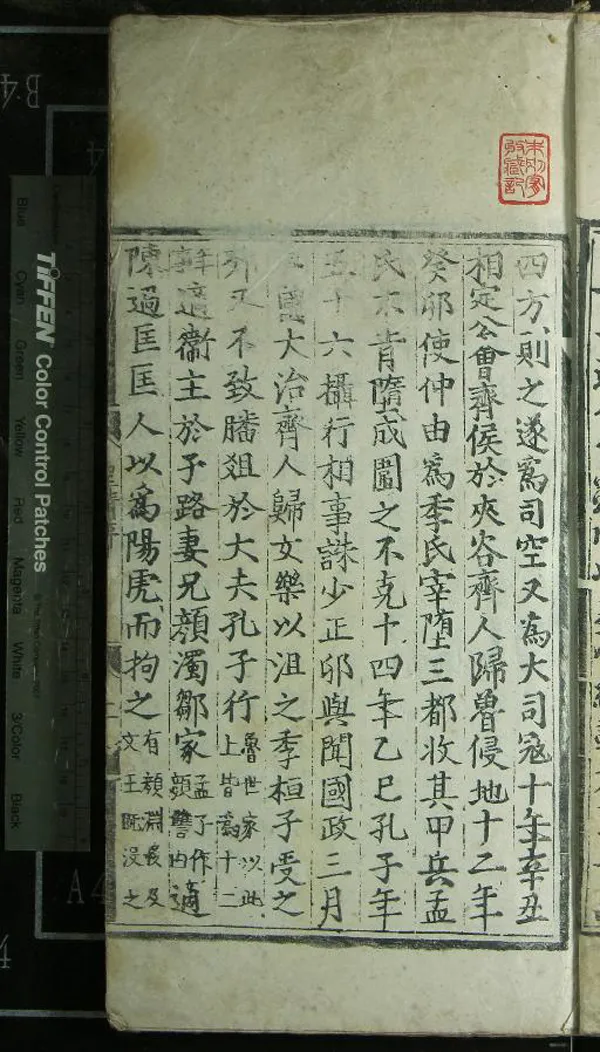 四方則之遂爲司空又爲大司寇十年辛丑
相定公會齊侯於夾谷齊人歸魯侵地十二年
癸卯使仲由爲季氏宰墮三都收其甲兵孟
氏不肯隳成圍之不克十四年乙巳孔子年
五十六攝行相事誅少正卯與聞國政三月
國大治齊人歸女樂以沮之季桓子受之
郊又不致膰俎於大夫孔子行魯世家以此
上皆爲十二
適衞主於子路妻兄顏濁鄒家孟子作
顏讐由
適
陳過匡匡人以爲陽虎而拘之有顏淵後及
文王旣沒之
TIFFEN Color Control Patches
Blue
Cyan
Green
Yellow
Red
Magenta
White
3/Color
Black
B4
A4